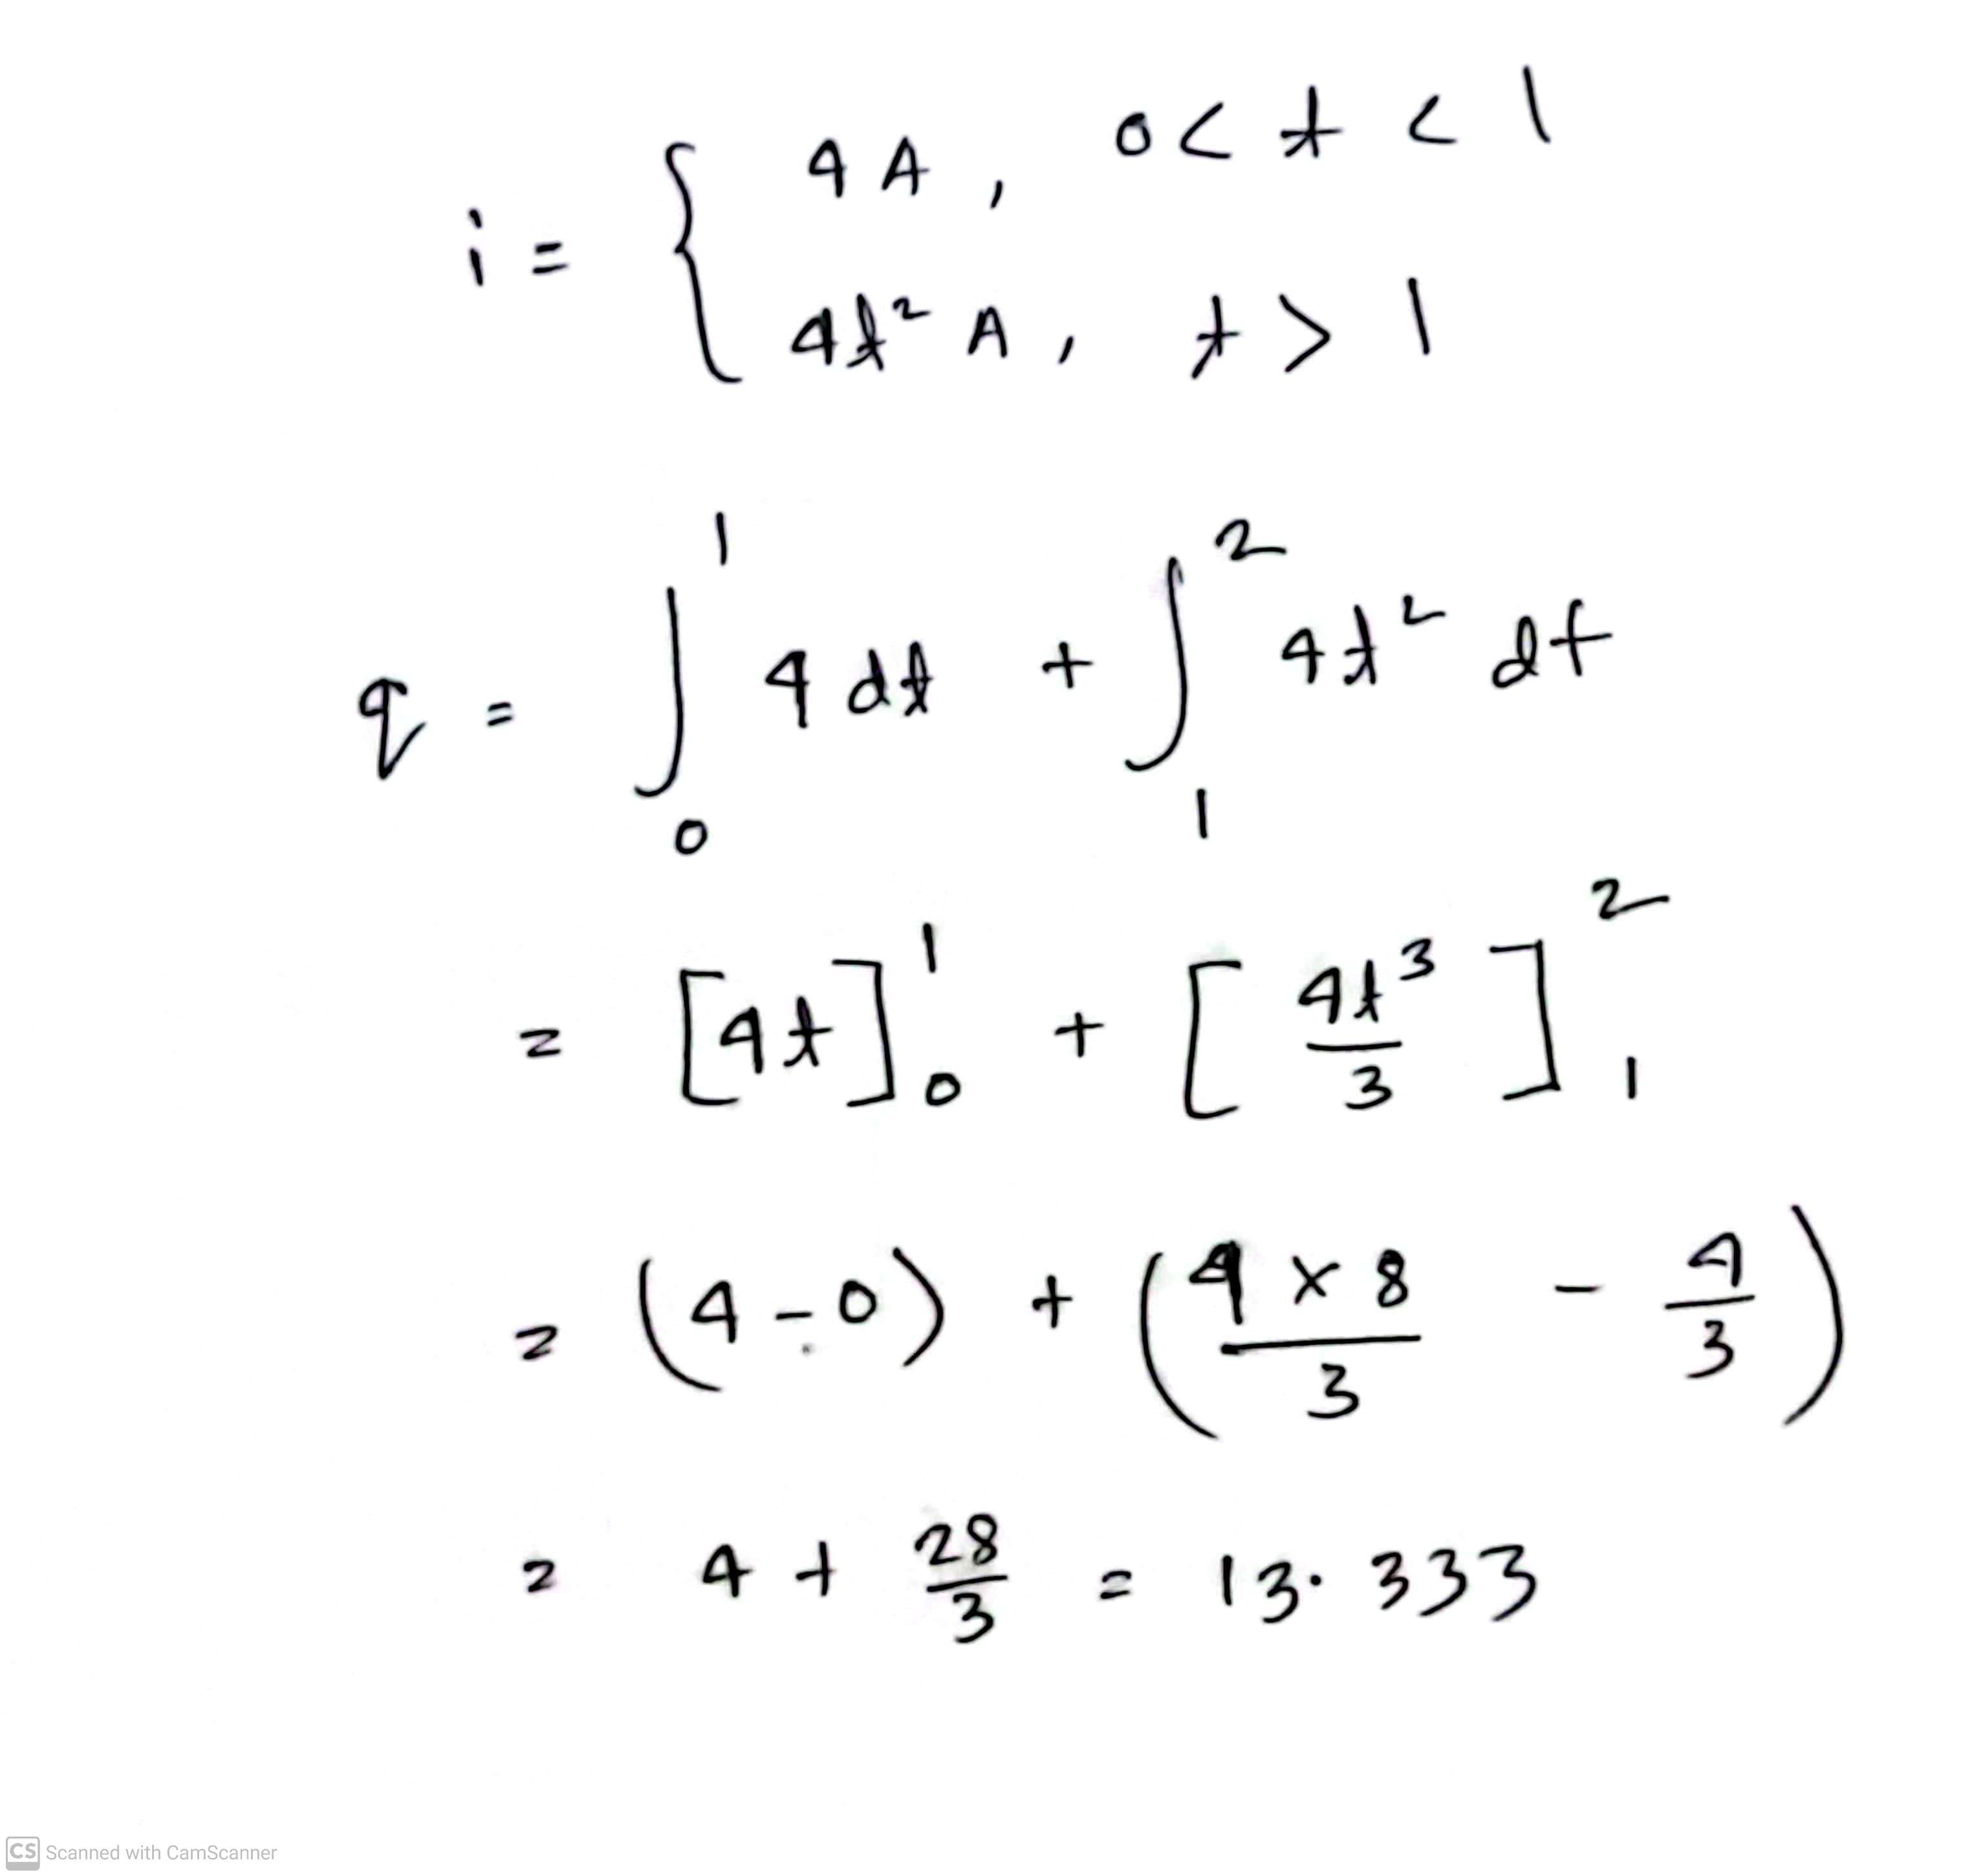 i = { 4 A , 0 < t < 1
4t² A , t > 1
q = ∫₀¹ 4 dt + ∫₁² 4t² dt
= [4t]₀¹ + [4t³/3]₁²
= (4 - 0) + (4 × 8/3 - 4/3)
= 4 + 28/3 = 13.333
CS Scanned with CamScanner